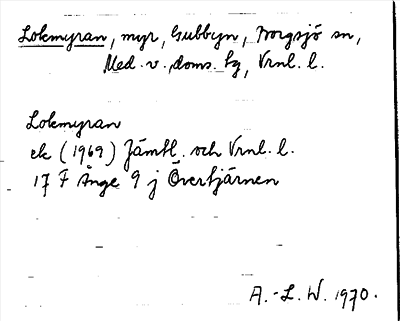 Lokmyran, myr, Gubbyn, Borgsjö sn,
Med. v. doms. tg, Vrnl. l.
Lokmyran
ek (1969) Jämtl. och Vrnl. l.
17 F Ånge 9 j Övertjärnen
A.-L. W. 1970.